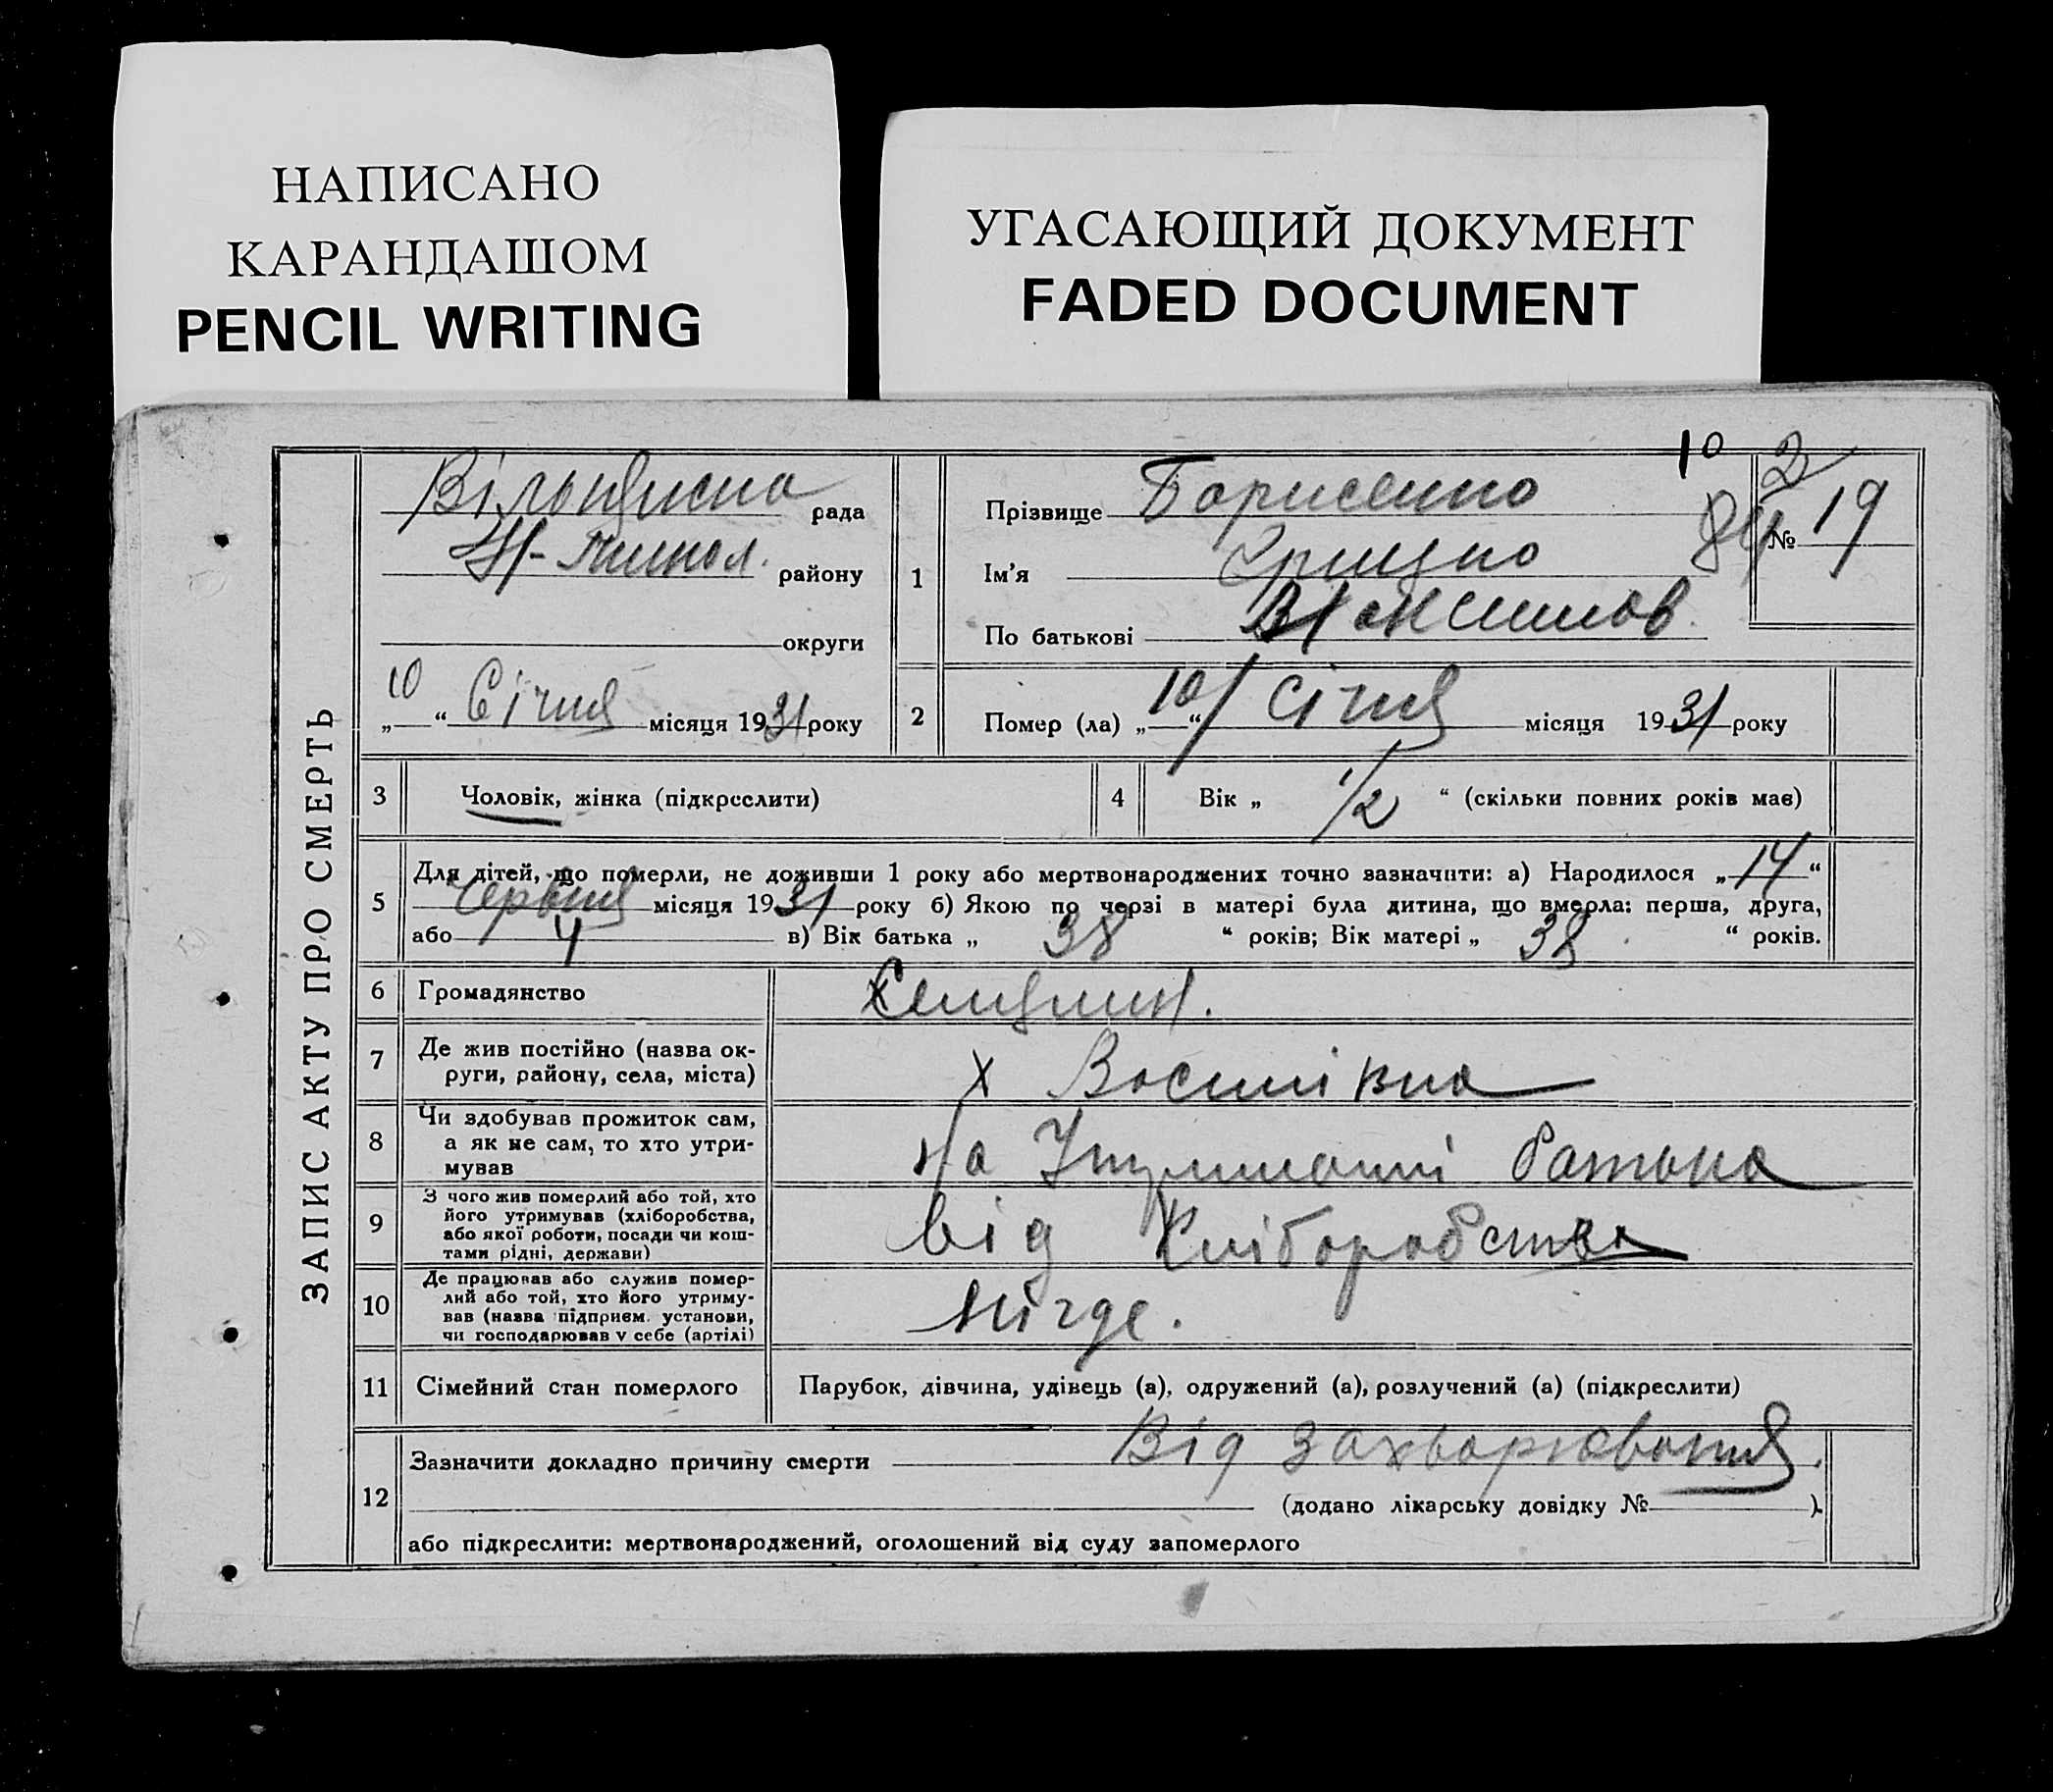 НАПИСАНО
КАРАНДАШОМ
PENCIL WRITING
УГАСАЮЩИЙ ДОКУМЕНТ
FADED DOCUMENT
ЗАПИС АКТУ ПРО СМЕРТЬ
рада
Н- району
округи
„10“ Січня місяця 1931 року
10 2
84
№ 19
1 Прізвище Борисенко
Ім'я Грицко
По батькові Максимов.
2 Помер (ла) „10“ Січня місяця 1931 року
3 Чоловік, жінка (підкреслити)
4 Вік „ 1/2 “ (скільки повних років має)
5 Для дітей, що померли, не доживши 1 року або мертвонароджених точно зазначити: а) Народилося „14“
Червня місяця 1931 року б) Якою по черзі в матері була дитина, що вмерла: перша, друга,
або 4 в) Вік батька „ 38 “ років; Вік матері „ 38 “ років.
6 Громадянство Селянин.
7 Де жив постійно (назва ок-
руги, району, села, міста)
х Василівка
8 Чи здобував прожиток сам,
а як не сам, то хто утри-
мував
на Утриманні батька
9 З чого жив померлий або той, хто
його утримував (хліборобства,
або якої роботи, посади чи кош-
тами рідні, держави)
від Хліборобства
10 Де працював або служив помер-
лий або той, хто його утриму-
вав (назва підприєм. установи,
чи господарював у себе (артілі)
Нігде.
11 Сімейний стан померлого Парубок, дівчина, удівець (а), одружений (а), розлучений (а) (підкреслити)
12 Зазначити докладно причину смерти Від захворювання.
(додано лікарську довідку № )
або підкреслити: мертвонароджений, оголошений від суду запомерлого